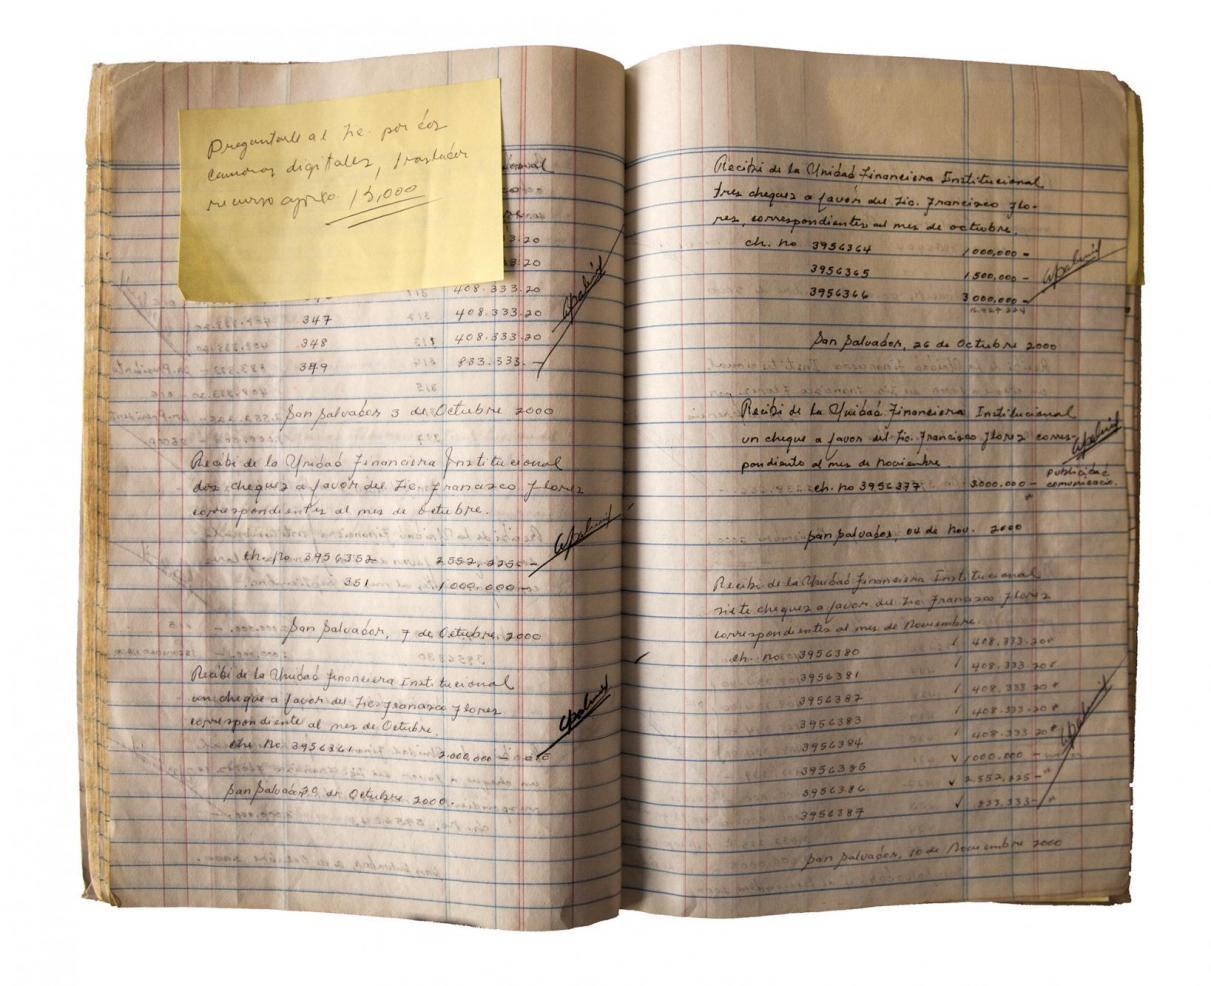 Preguntarle al Lic. por dos
camaras digitales, trasladar
recurso aprox. 15,000
408.333.20
347 408.333.20
348 408.333.20
349 833.333.-
San Salvador 3 de Octubre 2000
Recibi de la Unidad Financiera Institucional
dos cheques a favor del Lic. Francisco Flores
correspondientes al mes de Octubre.
ch. No. 3956352 2.552,225-
351 1.000.000-
San Salvador, 7 de Octubre, 2000
Recibi de la Unidad Financiera Institucional
un cheque a favor del Lic. Francisco Flores
correspondiente al mes de Octubre.
ch. No. 3956361 2.000,000-
San Salvador 20 de Octubre 2000.
Recibi de la Unidad Financiera Institucional
tres cheques a favor del Lic. Francisco Flo-
res, correspondientes al mes de octubre.
ch. no 3956364 1000,000-
3956365 1500,000-
3956366 3000,000-
San Salvador, 26 de Octubre 2000
Recibi de la Unidad Financiera Institucional
un cheque a favor del Lic. Francisco Flores corres-
pondiente al mes de Noviembre.
ch. no 3956377 3.000.000-
publicidad
comunicacio.
San Salvador, 04 de Nov. 2000
Recibi de la Unidad Financiera Institucional
siete cheques a favor del Lic. Francisco Flores
correspondientes al mes de Noviembre.
ch. no. 3956380 ✓ 408.333.20
3956381 ✓ 408.333.20
3956382 ✓ 408.333.20
3956383 ✓ 408.333.20
3956384 ✓ 408.333.20
3956385 ✓ 1000.000-
3956386 ✓ 2.552,225-
3956387 ✓ 833.333-
San Salvador, 10 de Noviembre 2000